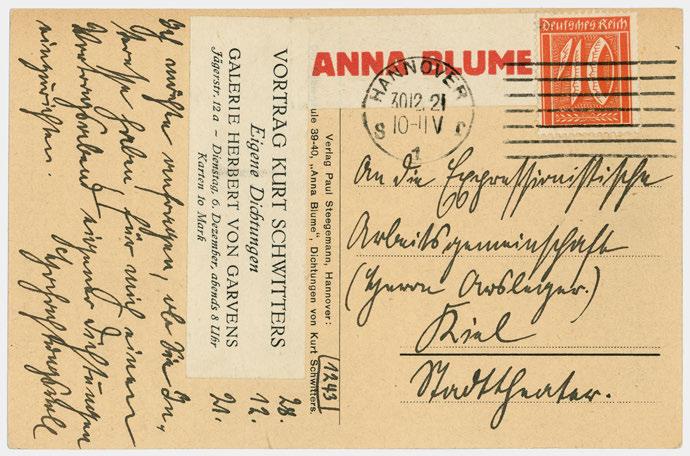 Ich möchte anfragen, ob Sie In-
teresse haben, für mich einen
Vortragsabend eigener Dichtungen
einzurichten
Hochachtungsvoll
VORTRAG KURT SCHWITTERS
Eigene Dichtungen
GALERIE HERBERT VON GARVENS
Jägerstr. 12 a – Dienstag, 6. Dezember, abends 8 Uhr
Karten 10 Mark
28.
12.
21.
Verlag Paul Steegemann, Hannover:
ule 39-40, „Anna Blume“, Dichtungen von Kurt Schwitters.
(1243)
ANNA BLUME
Deutsches Reich
40
HANNOVER
30.12.21
10-11V
S 1 C
An die Expressionistische
Arbeitsgemeinschaft
(Herrn Arsleger.)
Kiel
Stadttheater.